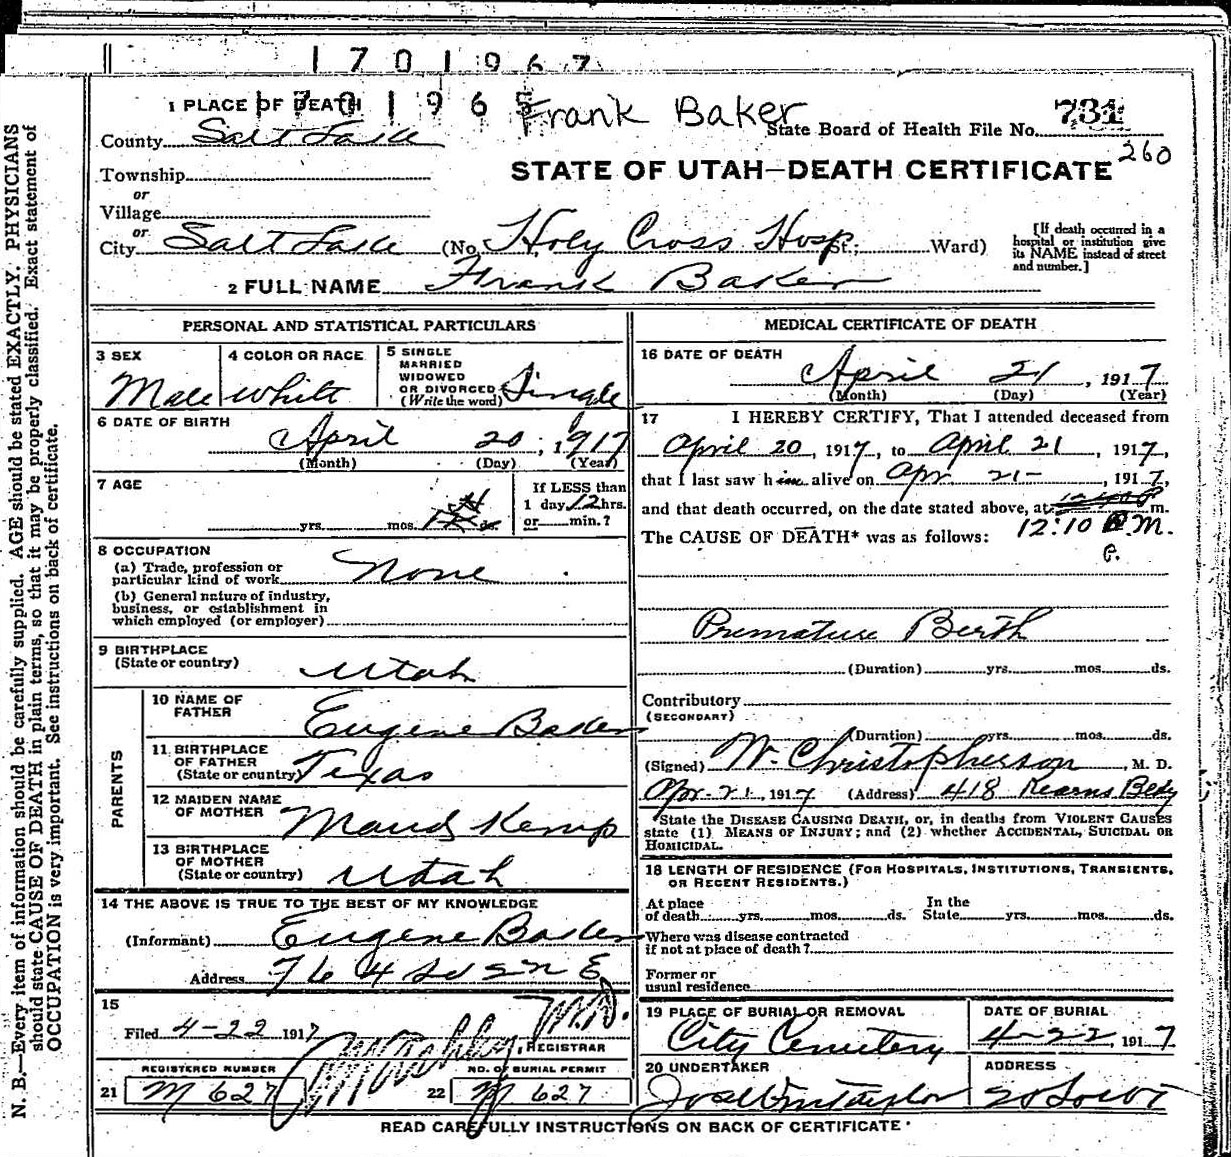 1701967
1701965
Frank Baker
1 PLACE OF DEATH
County Salt Lake
State Board of Health File No. 731
260
Township
STATE OF UTAH—DEATH CERTIFICATE
or
Village
or
City Salt Lake (No. Holy Cross Hosp St.; Ward)
[If death occurred in a
hospital or institution give
its NAME instead of street
and number.]
2 FULL NAME Frank Baker
PERSONAL AND STATISTICAL PARTICULARS
3 SEX
Male
4 COLOR OR RACE
White
5 SINGLE
MARRIED
WIDOWED
OR DIVORCED
(Write the word)
Single
6 DATE OF BIRTH
April 20, 1917
(Month) (Day) (Year)
7 AGE
yrs. mos. ds.
If LESS than
1 day 12 hrs.
or min.?
8 OCCUPATION
(a) Trade, profession or
particular kind of work None
(b) General nature of industry,
business, or establishment in
which employed (or employer)
9 BIRTHPLACE
(State or country)
Utah
PARENTS
10 NAME OF
FATHER
Eugene Baker
11 BIRTHPLACE
OF FATHER
(State or country)
Texas
12 MAIDEN NAME
OF MOTHER
Maud Kemp
13 BIRTHPLACE
OF MOTHER
(State or country)
Utah
14 THE ABOVE IS TRUE TO THE BEST OF MY KNOWLEDGE
(Informant) Eugene Baker
Address
15
Filed 4-22 1917
M.D.
REGISTRAR
REGISTERED NUMBER
21 M 627
NO. OF BURIAL PERMIT
22 M 627
MEDICAL CERTIFICATE OF DEATH
16 DATE OF DEATH
April 21, 1917
(Month) (Day) (Year)
17 I HEREBY CERTIFY, That I attended deceased from
April 20, 1917, to April 21, 1917,
that I last saw him alive on Apr 21-, 1917,
and that death occurred, on the date stated above, at m.
12:10 P.M.
P.
The CAUSE OF DEATH* was as follows:
Premature Berth
(Duration) yrs. mos. ds.
Contributory
(SECONDARY)
(Duration) yrs. mos. ds.
(Signed) W. Christopherson, M. D.
Apr-21, 1917 (Address) 418 Kearns Bldg
State the DISEASE CAUSING DEATH, or, in deaths from VIOLENT CAUSES
state (1) MEANS OF INJURY; and (2) whether ACCIDENTAL, SUICIDAL OR
HOMICIDAL.
18 LENGTH OF RESIDENCE (FOR HOSPITALS, INSTITUTIONS, TRANSIENTS,
OR RECENT RESIDENTS.)
At place
of death yrs. mos. ds.
In the
State yrs. mos. ds.
Where was disease contracted
if not at place of death?
Former or
usual residence
19 PLACE OF BURIAL OR REMOVAL
City Cemetery
DATE OF BURIAL
4-22, 1917
20 UNDERTAKER
Jos Wm Taylor
ADDRESS
READ CAREFULLY INSTRUCTIONS ON BACK OF CERTIFICATE
N. B.—Every item of information should be carefully supplied. AGE should be stated EXACTLY. PHYSICIANS
should state CAUSE OF DEATH in plain terms, so that it may be properly classified. Exact statement of
OCCUPATION is very important. See instructions on back of certificate.